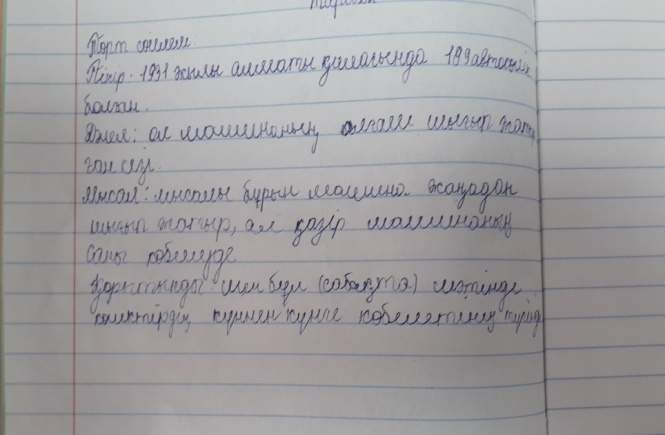 Төрт сөйлем
Пікір. 1931 жылы алматы қаласында 199 автомобиль
болған.
Дәлел: ол машинаның алғаш шығып жатқ
ан кезі.
Мысал: мысалы бұрын машина жаңадан
шығып жатыр, ал қазір машинаның
саны көбеюде
Қорытынды мен бұл (сабақта) мәтінде
көліктердің күннен күнге көбейетінін түсінд